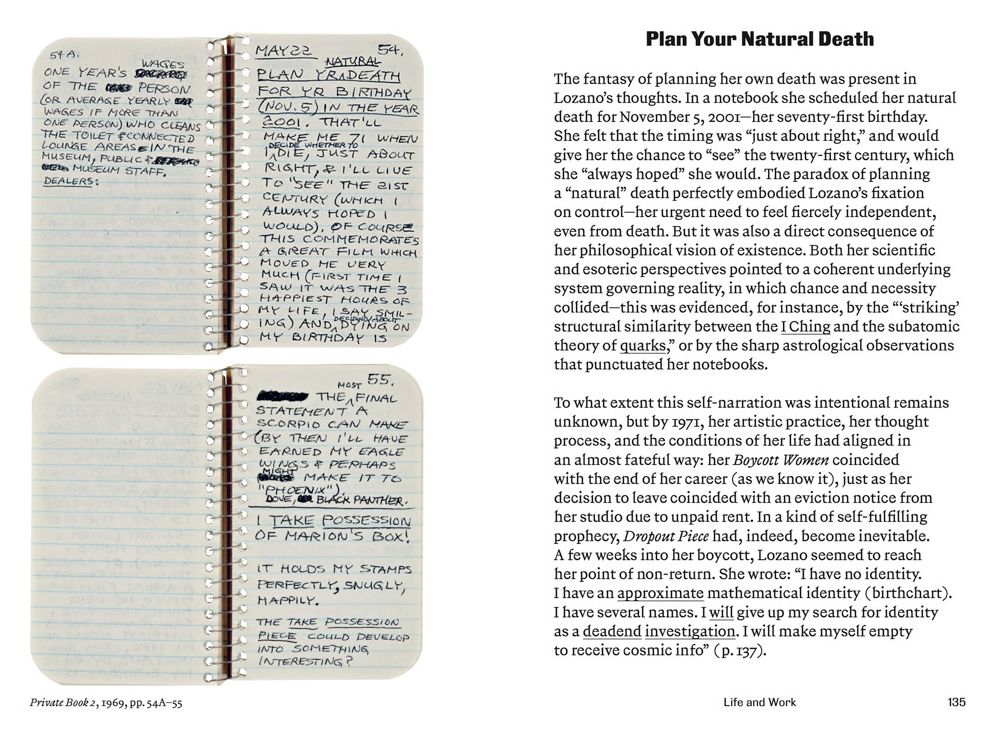 54-A.
WAGES
ONE YEAR'S
OF THE PERSON
(OR AVERAGE YEARLY
WAGES IF MORE THAN
ONE PERSON) WHO CLEANS
THE TOILET & CONNECTED
LOUNGE AREAS IN THE
MUSEUM, PUBLIC &
MUSEUM STAFF.
DEALERS:
MAY 22 54.
NATURAL
PLAN YR ^ DEATH
FOR YR BIRTHDAY
(NOV. 5) IN THE YEAR
2001. THAT'LL
MAKE ME 71 WHEN
DECIDE WHETHER TO
I ^ DIE, JUST ABOUT
RIGHT, & I'LL LIVE
TO "SEE" THE 21ST
CENTURY (WHICH I
ALWAYS HOPED I
WOULD), OF COURSE
THIS COMMEMORATES
A GREAT FILM WHICH
MOVED ME VERY
MUCH (FIRST TIME I
SAW IT WAS THE 3
HAPPIEST HOURS OF
MY LIFE, I SAY SMIL-
ING) AND ^ DYING ON
MY BIRTHDAY IS
55.
MOST
THE ^ FINAL
STATEMENT A
SCORPIO CAN MAKE
(BY THEN I'LL HAVE
EARNED MY EAGLE
WINGS & PERHAPS
MIGHT
MAKE IT TO
"PHOENIX").
DOVE, BLACK PANTHER.
I TAKE POSSESSION
OF MARION'S BOX!
IT HOLDS MY STAMPS
PERFECTLY, SNUGLY,
HAPPILY.
THE TAKE POSSESSION
PIECE COULD DEVELOP
INTO SOMETHING
INTERESTING?
Private Book 2, 1969, pp. 54A–55
Plan Your Natural Death
The fantasy of planning her own death was present in
Lozano's thoughts. In a notebook she scheduled her natural
death for November 5, 2001—her seventy-first birthday.
She felt that the timing was "just about right," and would
give her the chance to "see" the twenty-first century, which
she "always hoped" she would. The paradox of planning
a "natural" death perfectly embodied Lozano's fixation
on control—her urgent need to feel fiercely independent,
even from death. But it was also a direct consequence of
her philosophical vision of existence. Both her scientific
and esoteric perspectives pointed to a coherent underlying
system governing reality, in which chance and necessity
collided—this was evidenced, for instance, by the "'striking'
structural similarity between the I Ching and the subatomic
theory of quarks," or by the sharp astrological observations
that punctuated her notebooks.
To what extent this self-narration was intentional remains
unknown, but by 1971, her artistic practice, her thought
process, and the conditions of her life had aligned in
an almost fateful way: her Boycott Women coincided
with the end of her career (as we know it), just as her
decision to leave coincided with an eviction notice from
her studio due to unpaid rent. In a kind of self-fulfilling
prophecy, Dropout Piece had, indeed, become inevitable.
A few weeks into her boycott, Lozano seemed to reach
her point of non-return. She wrote: "I have no identity.
I have an approximate mathematical identity (birthchart).
I have several names. I will give up my search for identity
as a deadend investigation. I will make myself empty
to receive cosmic info" (p. 137).
Life and Work 135